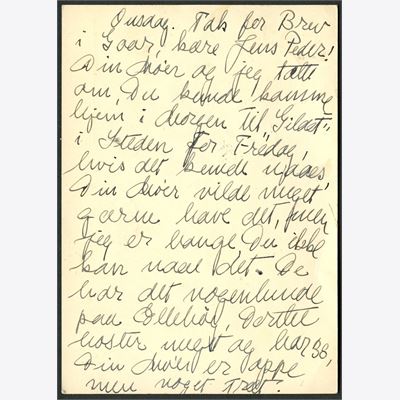 Onsdag. Tak for Brev
i Gaar, kære Jens Peder!
Din Moer og jeg talte
om, Du kunde komme
hjem i Morgen til "Gildet"
i Steden for Fredag,
hvis det kunde naaes
Din Moer vilde meget
gærne have det, men
jeg er bange Du ikke
kan naae det. De
har det nogenlunde
paa Ellehøi, Dorthe
hoster meget og har 38,
Din Moer er oppe
men noget træt.